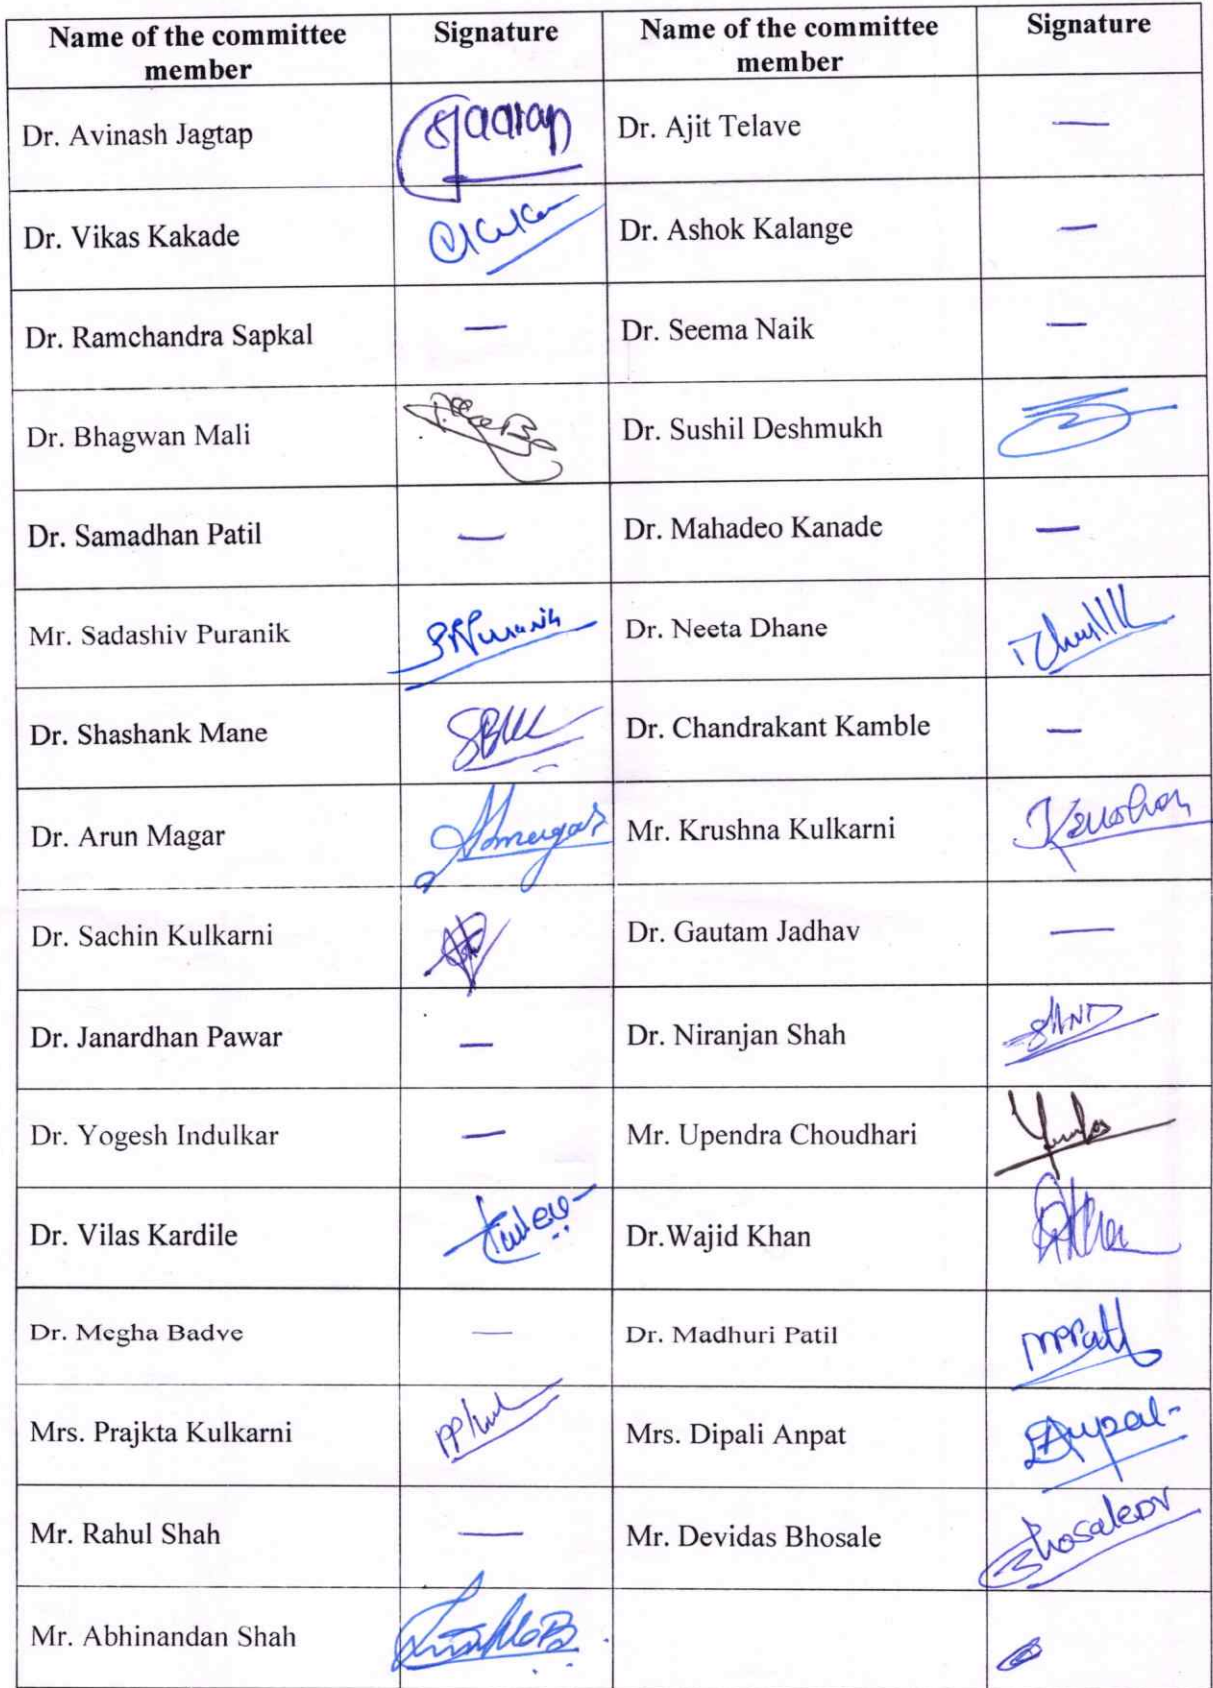 Name of the committee member Signature Name of the committee member Signature
Dr. Avinash Jagtap Dr. Ajit Telave —
Dr. Vikas Kakade Dr. Ashok Kalange —
Dr. Ramchandra Sapkal — Dr. Seema Naik —
Dr. Bhagwan Mali Dr. Sushil Deshmukh
Dr. Samadhan Patil — Dr. Mahadeo Kanade —
Mr. Sadashiv Puranik Dr. Neeta Dhane
Dr. Shashank Mane Dr. Chandrakant Kamble —
Dr. Arun Magar Mr. Krushna Kulkarni
Dr. Sachin Kulkarni Dr. Gautam Jadhav —
Dr. Janardhan Pawar — Dr. Niranjan Shah
Dr. Yogesh Indulkar — Mr. Upendra Choudhari
Dr. Vilas Kardile Dr.Wajid Khan
Dr. Megha Badve — Dr. Madhuri Patil
Mrs. Prajkta Kulkarni Mrs. Dipali Anpat
Mr. Rahul Shah — Mr. Devidas Bhosale BhosaleDV
Mr. Abhinandan Shah